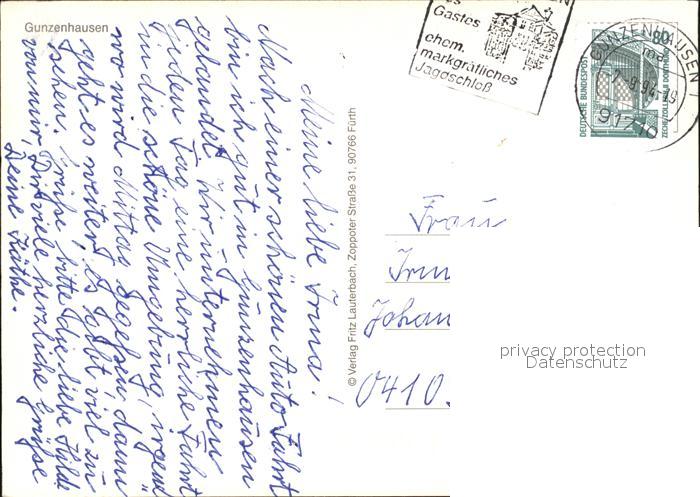 Gunzenhausen
Meine liebe Irma!
Nach einer schönen Auto Fahrt
bin ich gut in Gunzenhausen
gelandet. Wir unternehmen
jeden Tag eine herrliche Fahrt
in die schöne Umgebung, irgend
wo wird Mittag gegeßen, dann
geht es weiter, es gibt viel zu
sehen. Grüße, bitte die liebe Hilde
von mir, Dir viele herzliche Grüße
Deine Käthe.
© Verlag Fritz Lauterbach, Zoppoter Straße 31, 90766 Fürth
Gastes
ehem.
markgräfliches
Jagdschloß
80
DEUTSCHE BUNDESPOST
ZECHE ZOLLERN II DORTMUND
GUNZENHAUSEN 1
mg
-9.94-19
91710
Frau
Irm
Johan
0410
privacy protection
Datenschutz